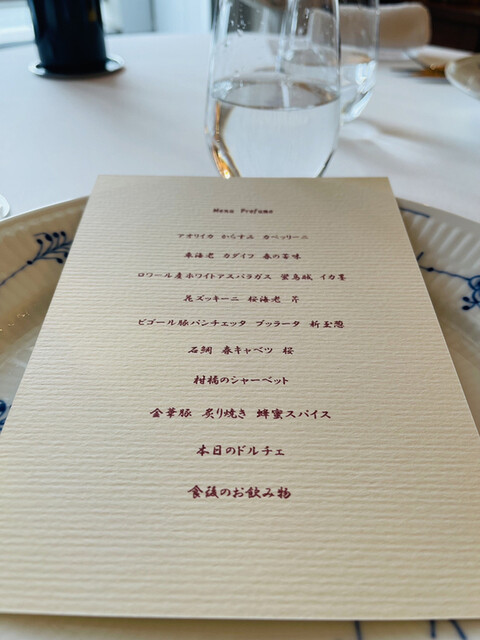 Menu Profumo
アオリイカ からすみ カペッリーニ
車海老 カダイフ 春の苦味
ロワール産ホワイトアスパラガス 蛍烏賊 イカ墨
花ズッキーニ 桜海老 芹
ビゴール豚パンチェッタ ブッラータ 新玉葱
石鯛 春キャベツ 桜
柑橘のシャーベット
金華豚 炙り焼き 蜂蜜スパイス
本日のドルチェ
食後のお飲み物